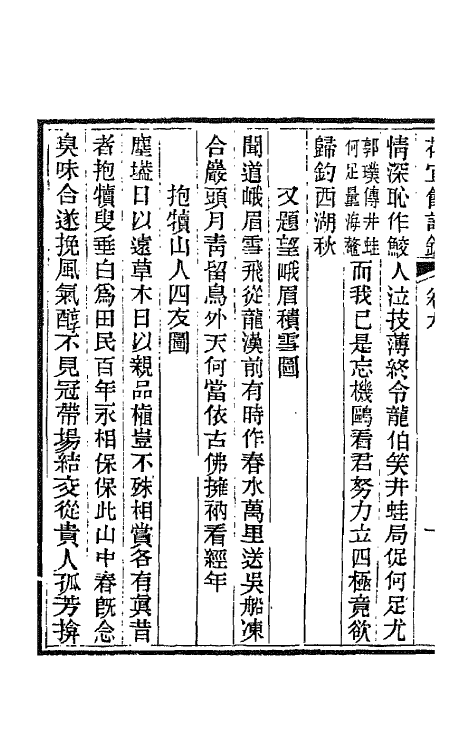 花宜館詩鈔 卷九 一
情深恥作鮫人泣技薄終令龍伯笑井蛙局促何足尤
郭璞傳井蛙
何足量海鼇
而我已是忘機鷗看君努力立四極竟欲
歸釣西湖秋
又題望峨眉積雪圖
聞道峨眉雪飛從龍漢前有時作春水萬里送吳船凍
合巖頭月靑留鳥外天何當依古佛擁衲看經年
抱犢山人四友圖
塵壒日以遠草木日以親品植豈不殊相賞各有眞昔
者抱犢叟垂白爲田民百年永相保保此山中春旣念
臭味合遂挽風氣醇不見冠帶場結交從貴人孤芳揜